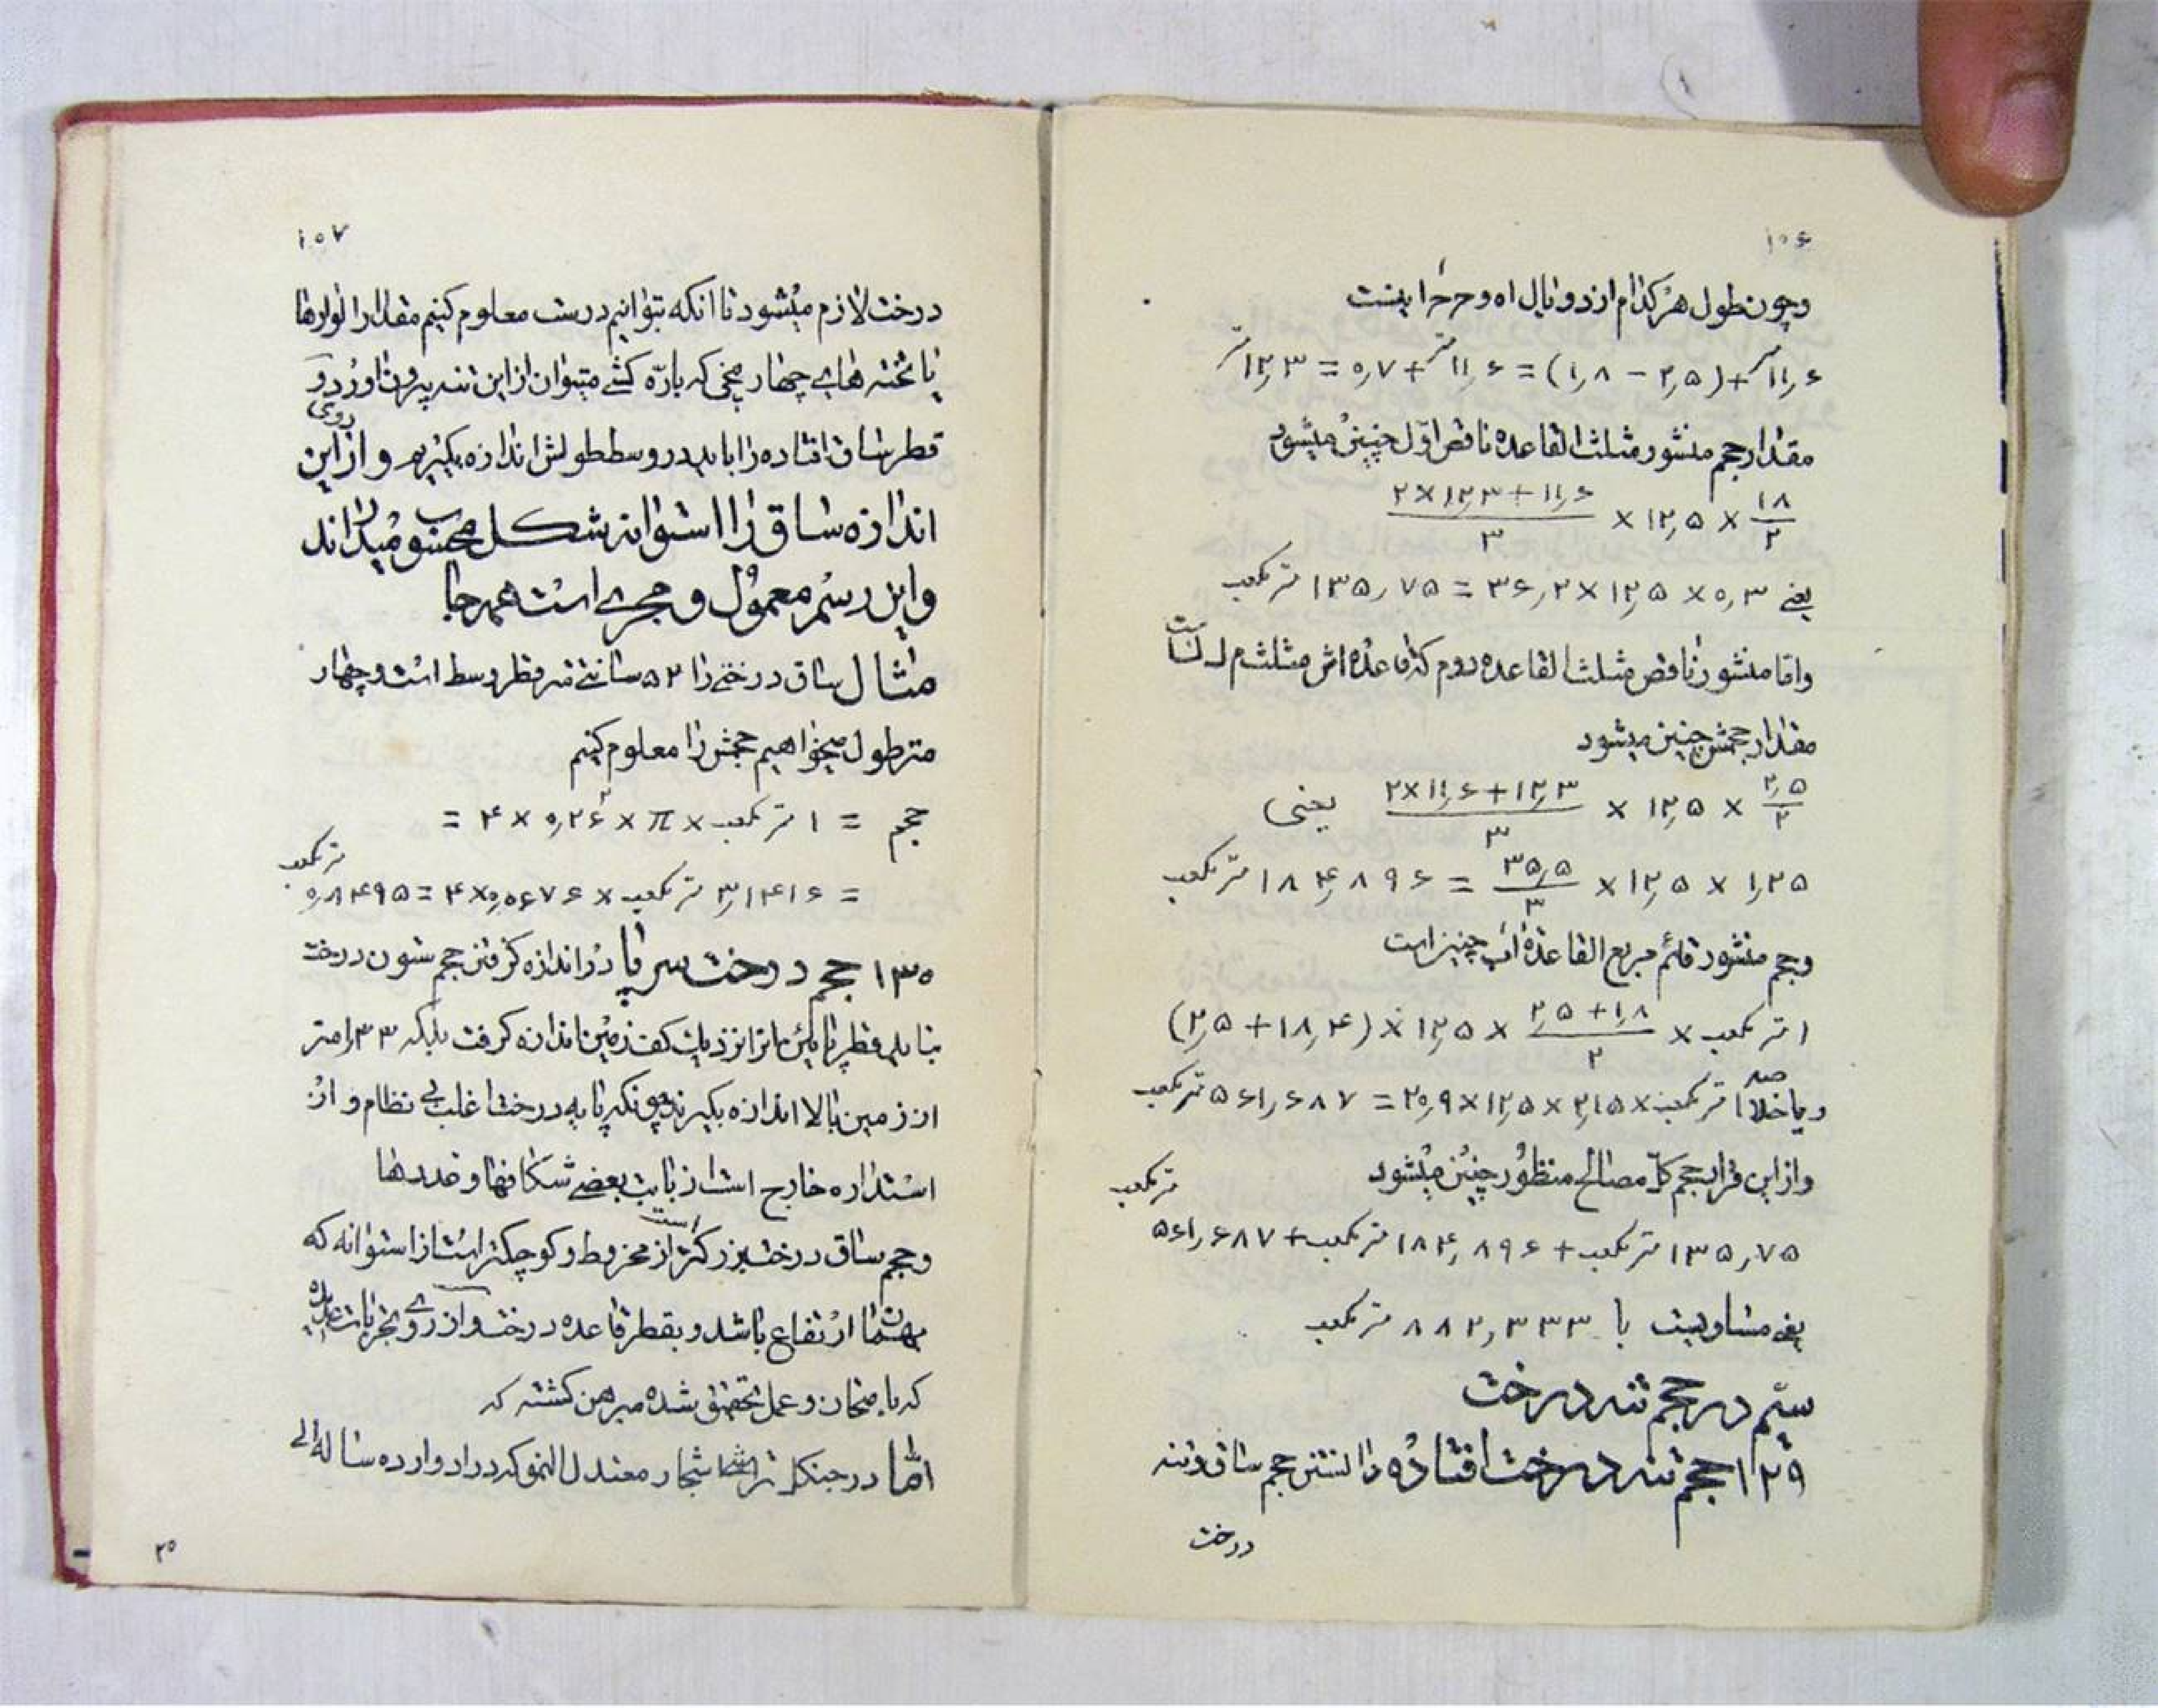 ۱۰۶
وچون طول هر کدام از دو یال اه و حرخ اینست
۱۱٫۶ متر + (۲٫۵ − ۱٫۸) = ۱۱٫۶ متر + ۰٫۷ = ۱۲٫۳ متر
مقدار حجم منشور مثلث القاعده ناقص اوّل چنین میشود
۱۸/۲ × ۱۲٫۵ × (۲×۱۲٫۳+۱۱٫۶)/۳
یعنے ۰٫۳ × ۱۲٫۵ × ۳۶٫۲ = ۱۳۵٫۷۵ متر مکعب
وامّا منشور ناقص مثلث القاعده دوم که قاعده اش مثلث م ل ن است
مقدار حجمش چنین میشود
۲٫۵/۲ × ۱۲٫۵ × (۲×۱۱٫۶+۱۲٫۳)/۳ یعنی
۱٫۲۵ × ۱۲٫۵ × ۳۵٫۵/۳ = ۱۸۴٫۸۹۶ متر مکعب
وحجم منشور قائم مربع القاعدهٔ اب چنین است
۱ متر مکعب × (۲٫۵+۱٫۸)/۲ × ۱۲٫۵ × (۲٫۵+۱۸٫۴)
ویا خلاصه ۱ متر مکعب × ۲٫۱۵ × ۱۲٫۵ × ۲۰٫۹ = ۵۶۱٫۶۸۷ متر مکعب
واز این قرار حجم کلّ مصالح منظور چنین میشود
۱۳۵٫۷۵ متر مکعب + ۱۸۴٫۸۹۶ متر مکعب + ۵۶۱٫۶۸۷ متر مکعب
یعنے مساویست با ۸۸۲٫۳۳۳ متر مکعب
سیّم در حجم تنه درخت
۱۲۹ حجم تنه درخت افتاده دانستن حجم ساق و تنه
درخت
۱۰۷
درخت لازم میشود تا آنکه بتوانیم درست معلوم کنیم مقدار الوارها
یا تخته های چهار میخی که با ارّه کشے میتوان از این تنه بیرون آورد و
قطر ساق افتاده را باید در وسط طولش اندازه بگیریم و از روی این
اندازه ساق را استوانه شکل محسوب میدارند
واین رسم معمول و مجرے است همه جا
مثال ساق درختے را ۵۲ سانتے متر قطر وسط است و چهار
متر طول میخواهیم حجمش را معلوم کنیم
حجم = ۱ متر مکعب × π × ۰٫۲۶۲ × ۴ =
= ۳٫۱۴۱۶ متر مکعب × ۰٫۰۶۷۶ × ۴ = ۰٫۸۴۹۵ متر مکعب
۱۳۰ حجم درخت سر پا در اندازه گرفتن حجم ستون درخت
نباید قطر پائین را از نزدیک کف زمین اندازه گرفت بلکه ۱٫۳۳ متر
از زمین بالا اندازه بگیرند چونکه پایه درخت اغلب بی نظام و از
استداره خارج است از بابت بعضے شکافها و غددها
وحجم ساق درخت بزرگتر است از مخروط و کوچکتر است از استوانه که
بهمان ارتفاع باشد و بقطر قاعده درخت و از روے تجربیات عدیده
که با متحان و عمل تحقیق شده مبرهن گشته که
امّا در جنگل تراشے اشجار معتدل النمو که در ادوار ده ساله الی
۲۰